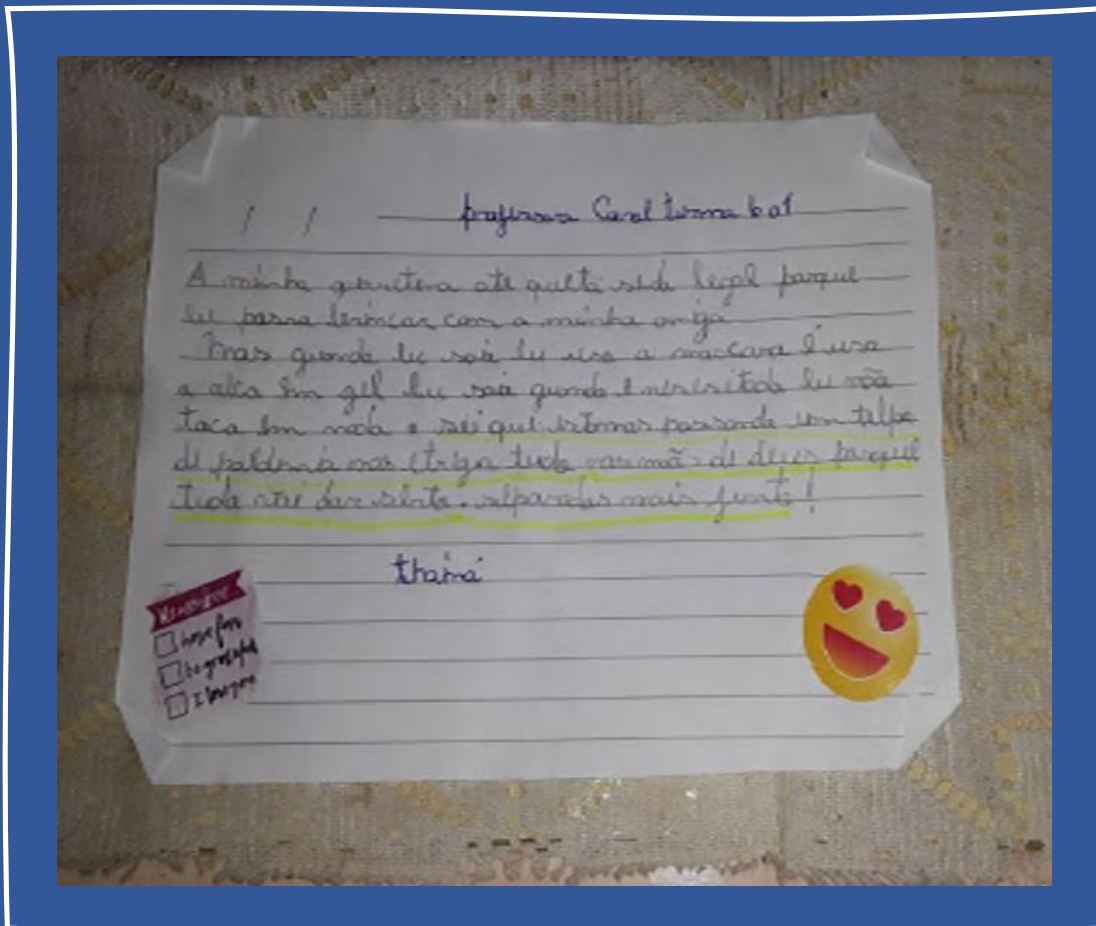 / / professora Carol turma 601
A minha quarentena ate que ta sedo legal porque
eu posso brincar com a minha amiga
Mas quando eu saio eu uso a mascara e uso
a alco em gel eu saio quando e nesesitado eu não
toca em nada e sei que estamos passando um
de mas etrega tudo nas mã de deus porque
tudo vai dar serto. separados mais junto!
thainá